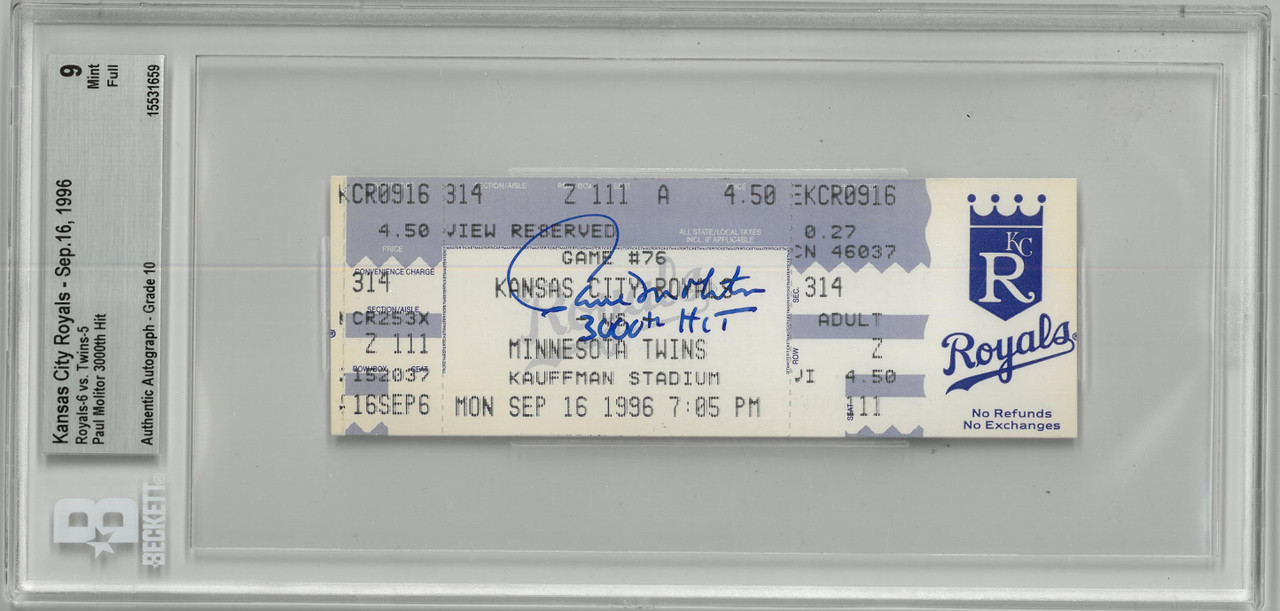 9
Mint
Full
15531659
Kansas City Royals - Sep.16, 1996
Royals-6 vs. Twins-5
Paul Molitor 3000th Hit
Authentic Autograph - Grade 10
B
BECKETT
KCR0916 314 Z 111 A 4.50 EKCR0916
SECTION/AISLE ROW/BOX SEAT PRICE
4.50 VIEW RESERVED 0.27
ALL STATE/LOCAL TAXES
INCL. IF APPLICABLE
PRICE
CN 46037
GAME #76
CONVENIENCE CHARGE
314 KANSAS CITY ROYALS 314
SEC.
Royals
Paul Molitor
3000th HIT
SECTION/AISLE
CR253X VS ADULT
Z 111 MINNESOTA TWINS Z
ROW
ROW/BOX SEAT
152037 KAUFFMAN STADIUM VI 4.50
16SEP6 MON SEP 16 1996 7:05 PM 111
SEAT
KC
R
Royals
No Refunds
No Exchanges